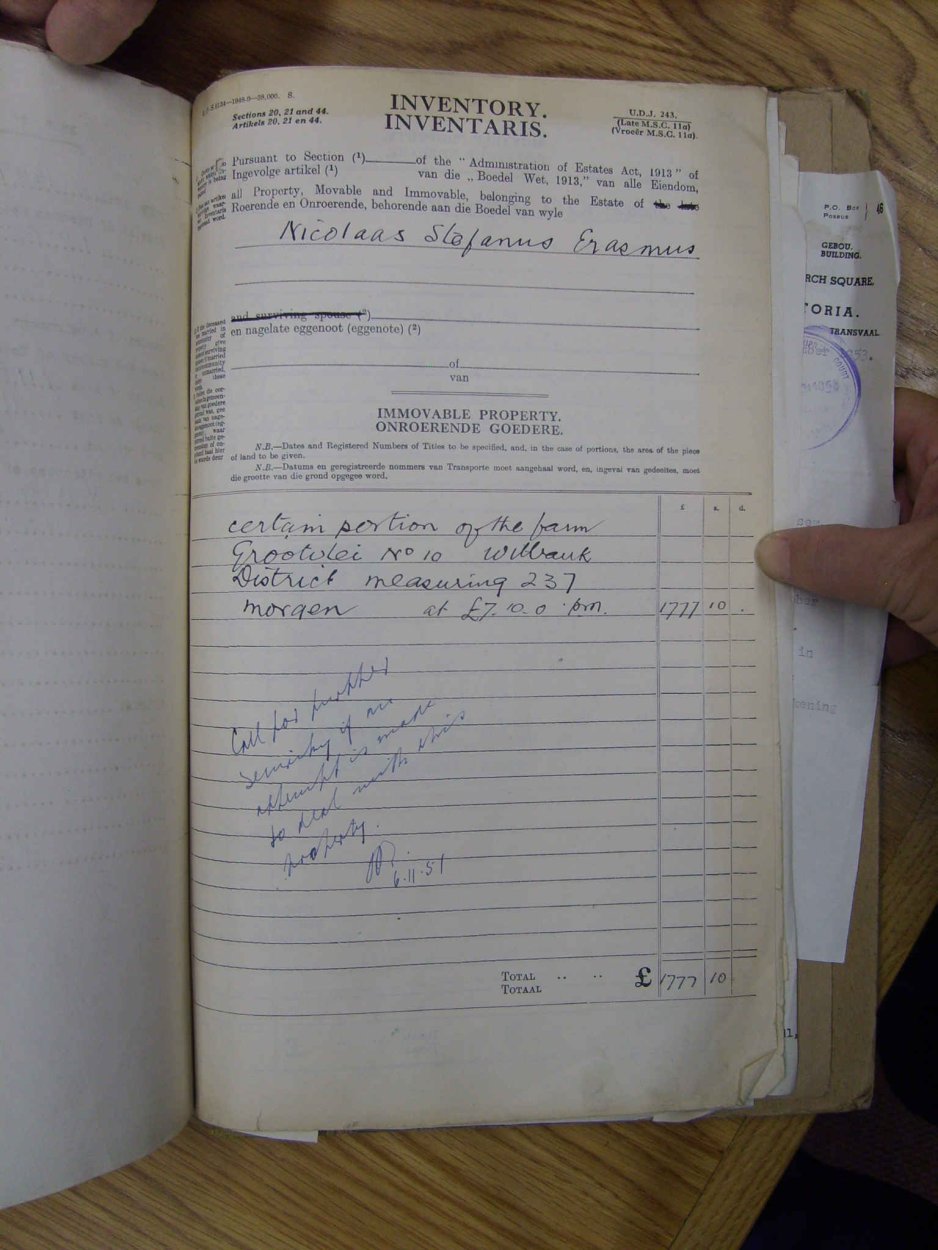 S.4134—1948-9—38,000. S.
Sections 20, 21 and 44.
Artikels 20, 21 en 44.
INVENTORY.
INVENTARIS.
U.D.J. 243.
(Late M.S.C. 11a)
(Vroeër M.S.C. 11a).
Pursuant to Section (¹)______of the "Administration of Estates Act, 1913" of
Ingevolge artikel (¹) van die „Boedel Wet, 1913," van alle Eiendom,
all Property, Movable and Immovable, belonging to the Estate of the late
Roerende en Onroerende, behorende aan die Boedel van wyle
Nicolaas Stefanus Erasmus
and surviving spouse (²)
en nagelate eggenoot (eggenote) (²)
of
van
IMMOVABLE PROPERTY.
ONROERENDE GOEDERE.
N.B.—Dates and Registered Numbers of Titles to be specified, and, in the case of portions, the area of the piece
of land to be given.
N.B.—Datums en geregistreerde nommers van Transporte moet aangehaal word, en, ingeval van gedeeltes, moet
die grootte van die grond opgegee word.
£ s. d.
certain portion of the farm
Grootvlei No 10 Witbank
District measuring 237
morgen at £7.10.0 pm. 1777 10 .
Call for further
security if an
attempt is made
to deal with this
property.
6.11.51
TOTAL .. .. £ 1777 10
TOTAAL
P.O. Box
Posbus
46
GEBOU.
BUILDING.
RCH SQUARE,
TORIA.
TRANSVAAL.
in